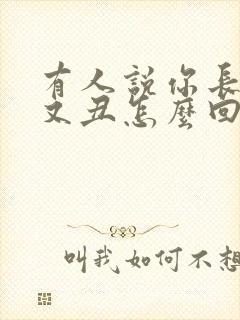 有人説你長
又丑怎麼回
叫我如何不想